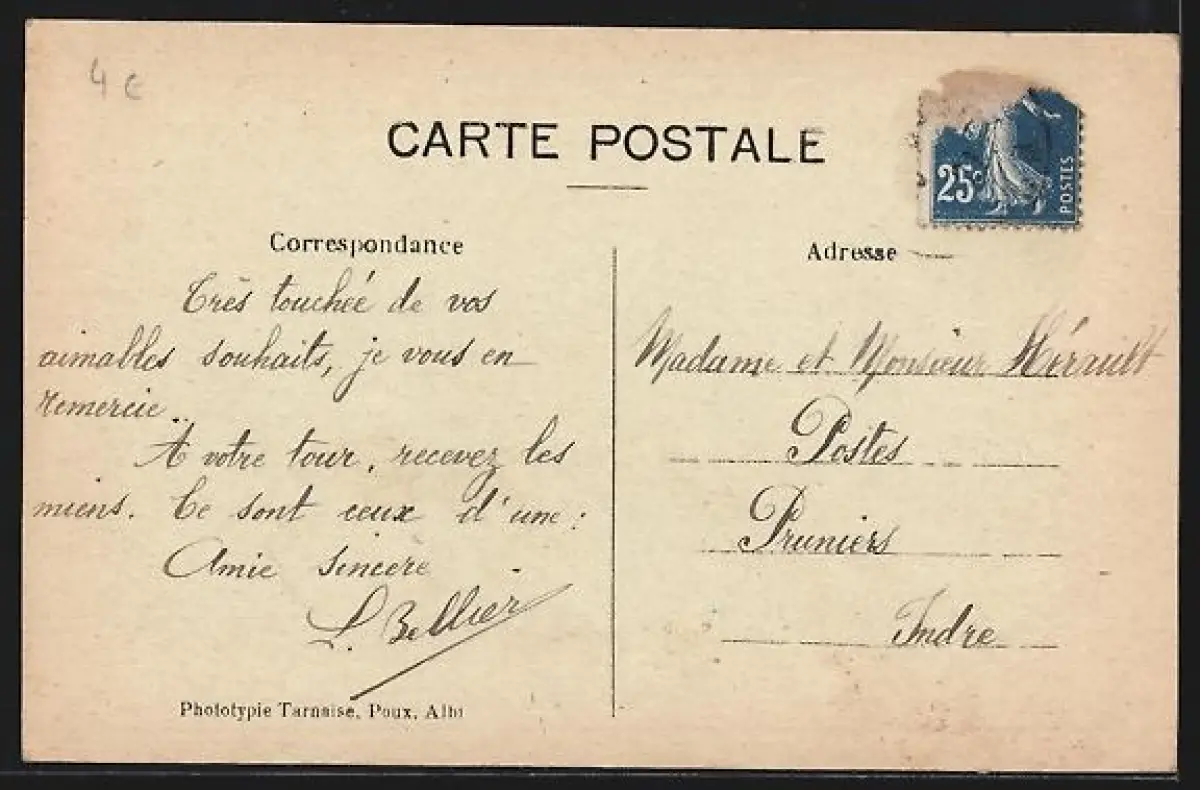 4 €
CARTE POSTALE
25c
POSTES
Correspondance
Très touchée de vos
aimables souhaits, je vous en
remercie..
A votre tour, recevez les
miens. Ce sont ceux d'une :
Amie sincère
L. Bellier
Phototypie Tarnaise, Poux, Albi
Adresse
Madame et Monsieur Hérault
Postes
Pruniers
Indre